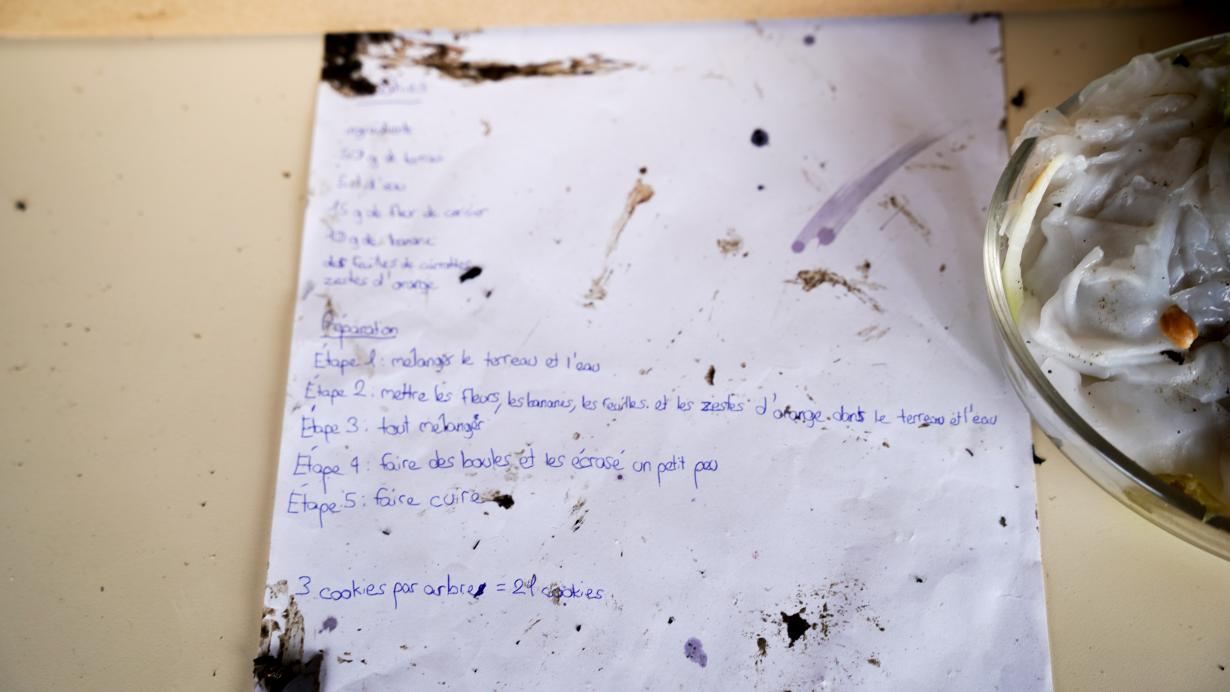 ingrédients
g de terreau
d'eau
15 g de fleur de cerisier
g de banane
des feuilles de carottes
zestes d'orange
Préparation
Étape 1 : mélanger le terreau et l'eau
Étape 2 : mettre les fleurs, les bananes, les feuilles et les zestes d'orange dans le terreau et l'eau
Étape 3 : tout mélanger
Étape 4 : faire des boules et les écrasé un petit peu
Étape 5 : faire cuire
3 cookies par arbre = 21 cookies